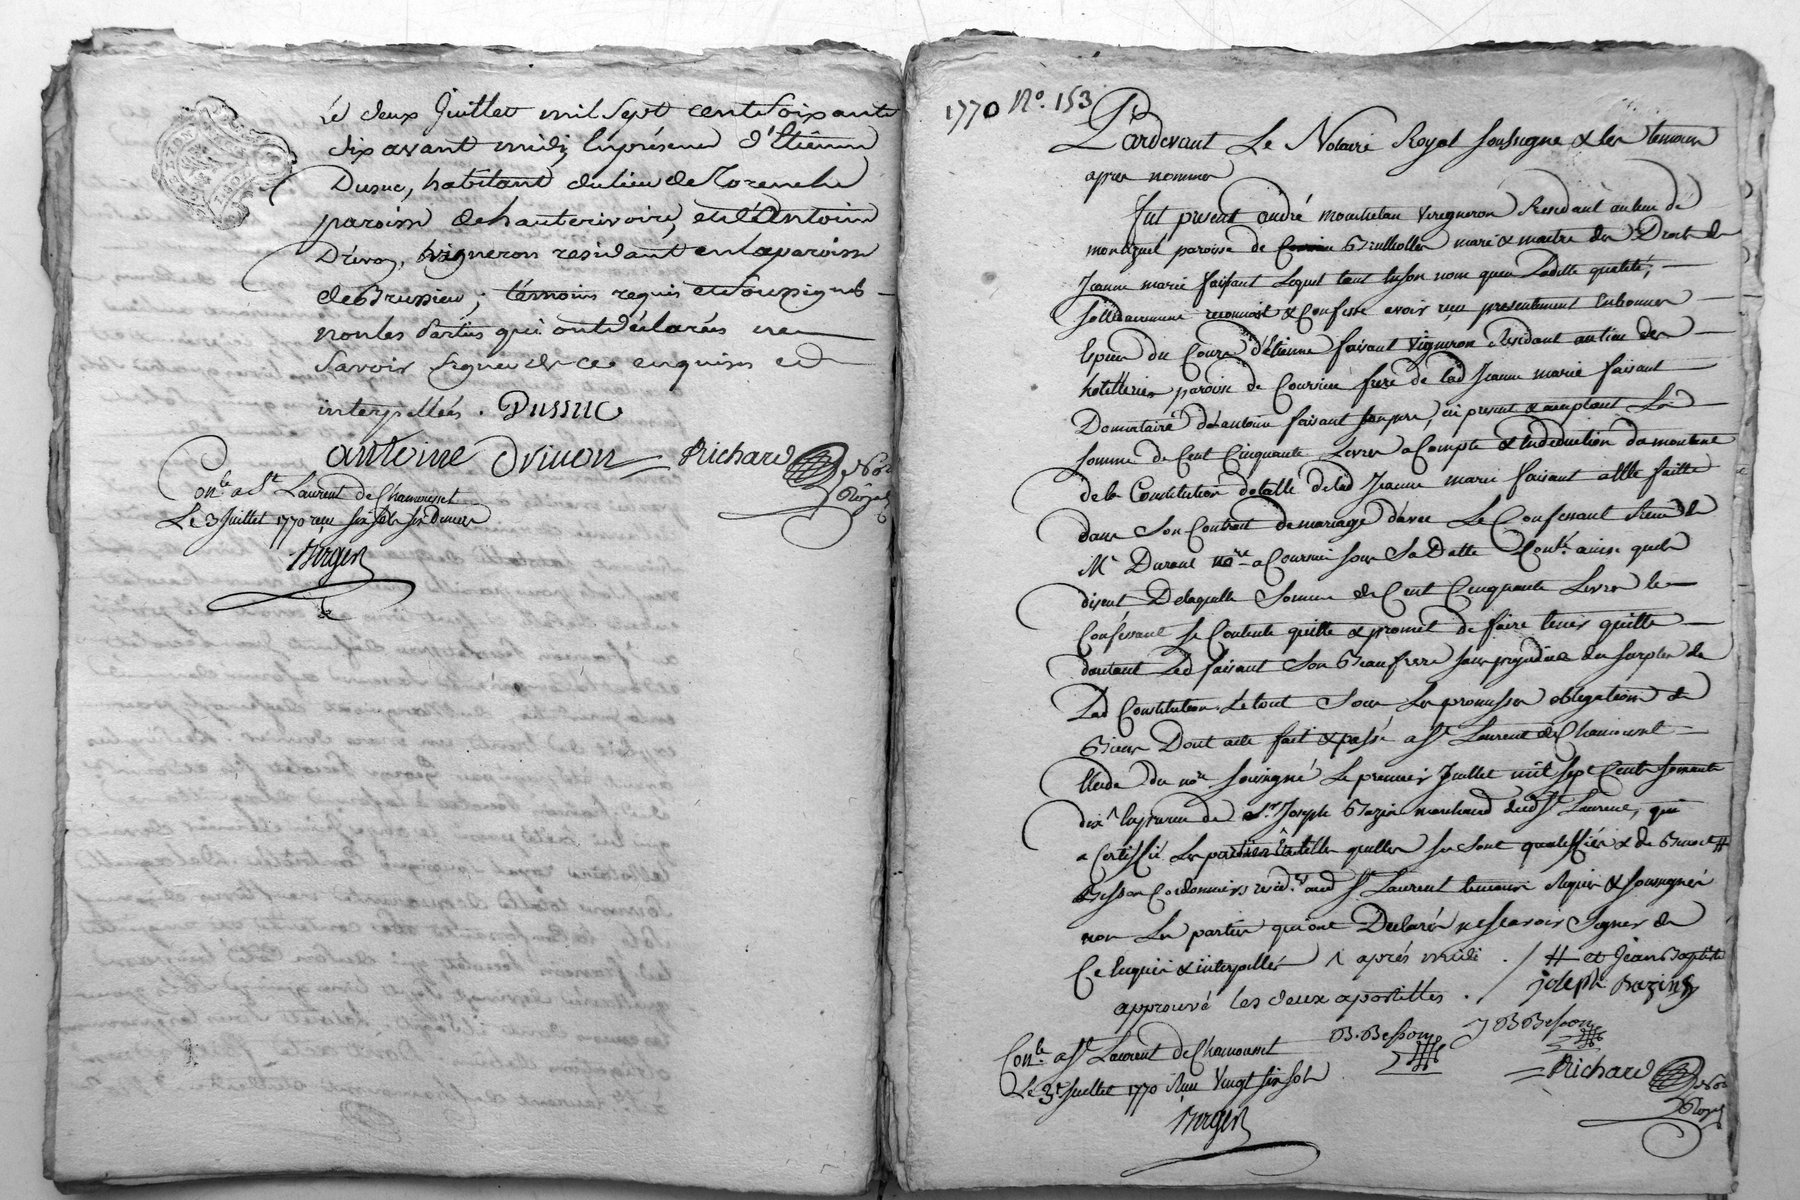 Le deux Juillet mil Sept cent Soixante
dix avant midi, En présence d'Etienne
Dusuc, habitant du lieu de
paroisse de hauterivoire, et d'Antoine
Drivon, vigneron residant en la paroisse
de Brussieu; témoins requis et soussignés
non les Parties qui ont déclarées ne
Savoir signer de ce enquises et
interpellées. Dussuc
antoine drivon Richard Nore Royal
Conlé a St Laurent de Chamousset
Le 3 Juillet 1770 reçu six sols six Deniers
Berger
1770 No. 153
Pardevant Le Notaire Royal soussigné & les temoins
apres nommés
fut present andré vigneron Residant au lieu de
paroisse de Brullioles marié & maitre des Droits de
Jeanne marie faisant Lequel tant en son nom qu'en Ladite qualité,
sollidairement reconnoit & Confesse avoir reçu presentement En bonnes
Especes du Cours d'Etienne faisant Vigneron Residant au lieu des
hotelleries paroisse de Courzieu frere de lad Jeanne marie faisant
Donnataire d'antoine faisant son pere, ici present & acceptant La
somme de Cent Cinquante Livres a Compte & En deduction du montant
de la Constitution dotalle de lad Jeanne marie faisant a Elle faitte
dans Son Contrat de mariage d'avec Le Confessant Reçu
Me nore a Courzieu sous Sa Datte Conlé ainsi quils
disent De laquelle Somme de Cent Cinquante Livres le
Confessant se Contente quitte & promet de faire tenir quitte
dautant Led faisant Son Beaufrere sans prejudice du surplus de
Lad Constitution. Le tout Sous Les promesses obligations de
Biens Dont acte fait & passé a St Laurent de Chamousset
Etude du nore soussigné Le premier Juillet mil Sept Cent soixante
dix ^ En presence de Sr Joseph Bazin marchand dud St Laurent, qui
a Certiffié Les parties Etre telles quelles se sont qualiffiées & de Benoit #
Besson Cordonniers resid.ts aud St Laurent temoins Requis & soussignés
non Les parties qui ont Declarés ne scavoir Signer de
Ce Enquis & interpellés ^ après midi. / # et Jean Baptiste
approuvé les deux apostilles. joseph Bazin
B. Besson J B Besson
Conlé a St Laurent de Chamousset
Le 3e Juillet 1770 Reçu Vingt six Sols Richard Nore Royal
Berger